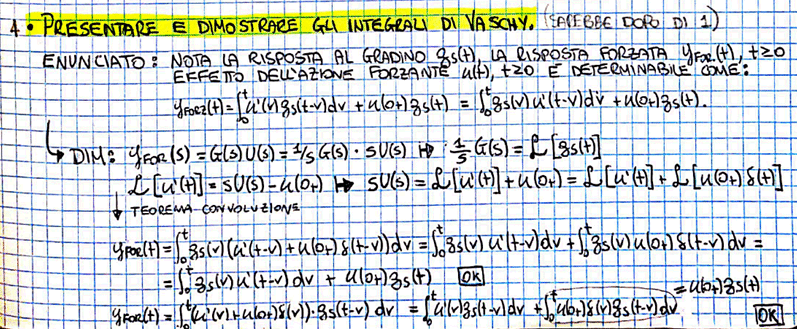 4 • PRESENTARE E DIMOSTRARE GLI INTEGRALI DI VASCHY. (SAREBBE DOPO DI 1)
ENUNCIATO: NOTA LA RISPOSTA AL GRADINO gs(t), LA RISPOSTA FORZATA yFOR(t), t≥0
EFFETTO DELL'AZIONE FORZANTE u(t), t≥0 E DETERMINABILE COME:
yFORZ(t) = ∫₀ᵗ u'(v)gs(t-v)dv + u(0+)gs(t) = ∫₀ᵗ gs(v)u'(t-v)dv + u(0+)gs(t).
↳ DIM: yFOR(s) = G(s)U(s) = 1/s G(s) · sU(s) ↦ 1/s G(s) = ℒ[gs(t)]
ℒ[u'(t)] = sU(s) - u(0+) ↦ sU(s) = ℒ[u'(t)] + u(0+) = ℒ[u'(t)] + ℒ[u(0+)δ(t)]
↓ TEOREMA CONVOLUZIONE
yFOR(t) = ∫₀ᵗ gs(v)(u'(t-v) + u(0+)δ(t-v))dv = ∫₀ᵗ gs(v)u'(t-v)dv + ∫₀ᵗ gs(v)u(0+)δ(t-v)dv =
= ∫₀ᵗ gs(v)u'(t-v)dv + u(0+)gs(t) OK
yFOR(t) = ∫₀ᵗ (u'(v) + u(0+)δ(v))·gs(t-v)dv = ∫₀ᵗ u'(v)gs(t-v)dv + ∫₀ᵗ u(0+)δ(v)gs(t-v)dv = u(0+)gs(t) OK